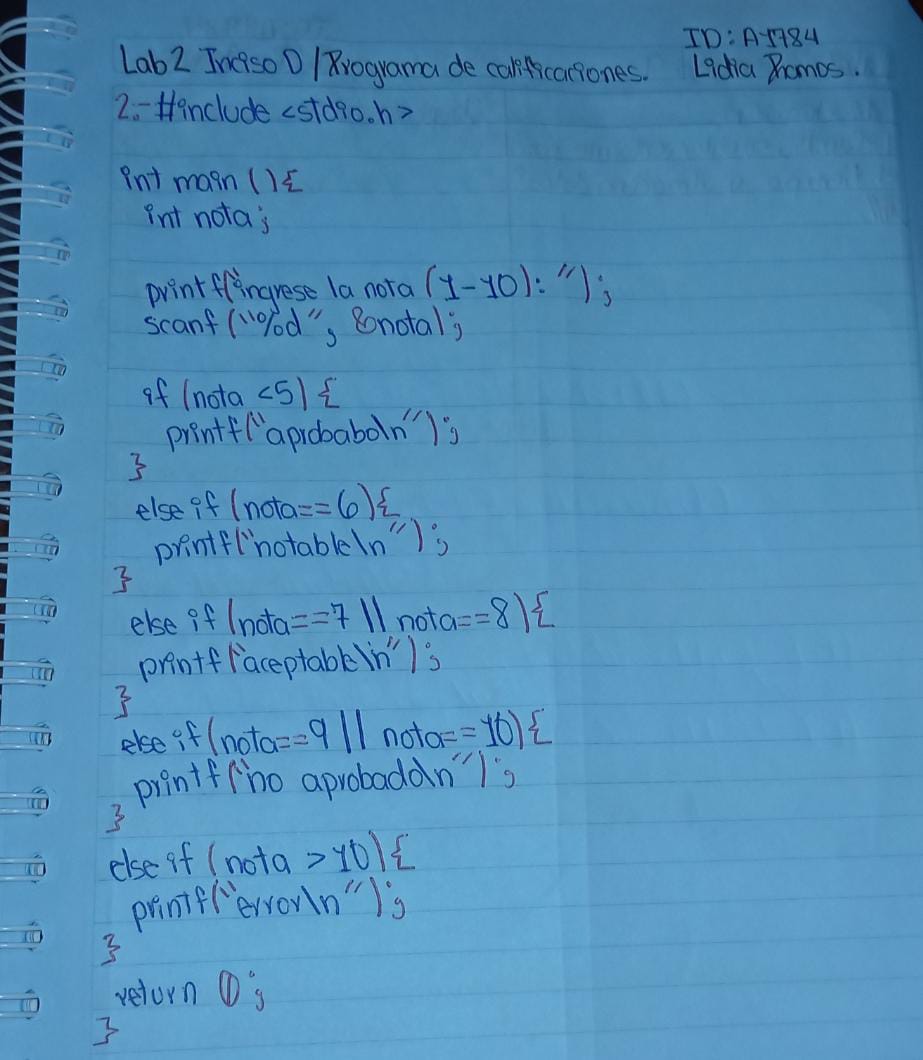 ID: A1784
Lab 2 Inciso D / Programa de calificaciones. Lidia Ramos.
2.- #include <stdio.h>
int main () {
int nota;
printf("ingrese la nota (1-10): ");
scanf ("%d", &nota);
if (nota <5) {
printf("aprobabo\n");
}
else if (nota==6){
printf("notable\n");
}
else if (nota==7 || nota==8){
printf("aceptable\n");
}
else if (nota==9 || nota==10){
printf("no aprobado\n");
}
else if (nota >10){
printf("error\n");
}
return 0;
}